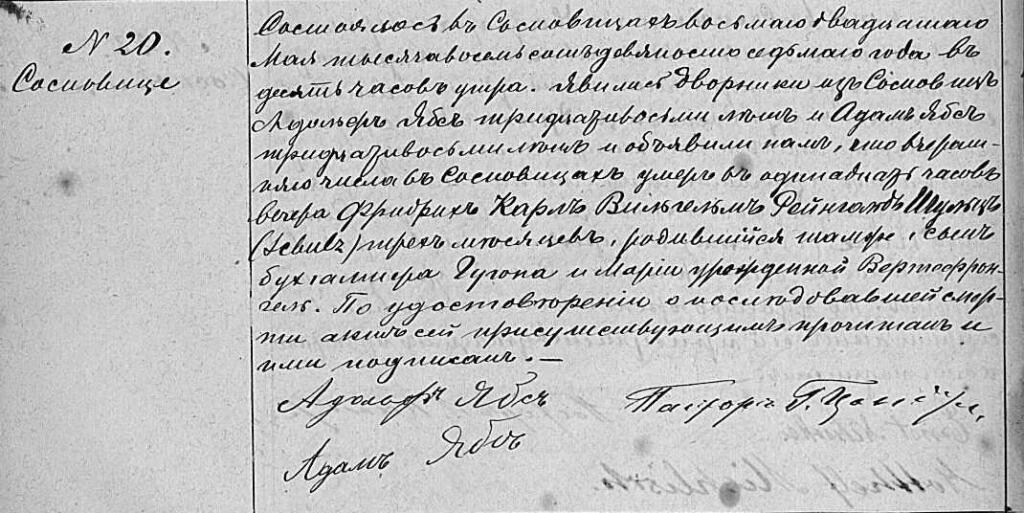 N 20.
Сосновице
Состоялось въ Сосновицахъ восьмаго двадцатаго
Мая тысяча восемьсотъ девяносто седьмаго года въ
десять часовъ утра. Явились дворники изъ Сосновицъ
Адольфъ Ябсъ тридцативосьми лѣтъ и Адамъ Ябсъ
тридцативосьми лѣтъ и объявили намъ, что вчераш-
няго числа въ Сосновицахъ умеръ въ одинадцать часовъ
вечера Фридрихъ Карлъ Вильгельмъ Рейнгольдъ Шульцъ
(Schulz) трехъ мѣсяцевъ, родившійся тамже, сынъ
бухгалтера Гугона и Маріи урожденной Вертефрон-
гель. По удостовѣреніи о послѣдовавшей смер-
ти актъ сей присутствующимъ прочитанъ и
ими подписанъ. —
Адольфъ Ябсъ
Пасторъ Г.
Адамъ Ябсъ